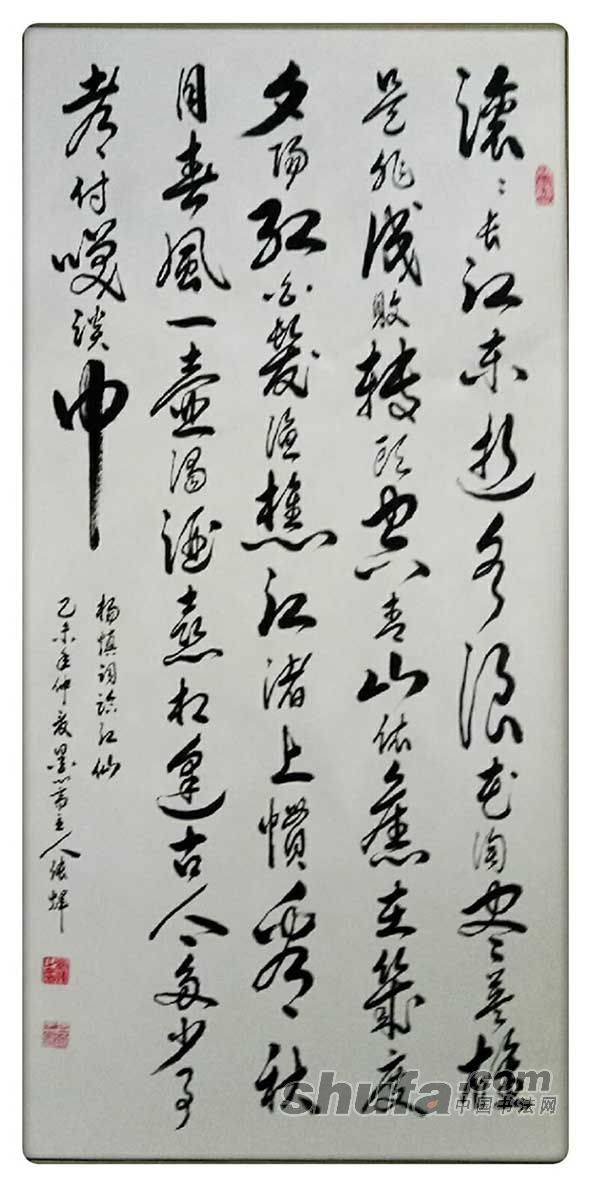 滚〻长江东逝水浪花淘尽英雄
是非成败转头空青山依舊在幾度
夕阳红白髮渔樵江渚上惯看秋
月春風一壶浊酒喜相逢古今多少事
都付笑谈中
杨慎词临江仙
乙未年仲夏墨斋主人张辉
shufa.com
中国书法网